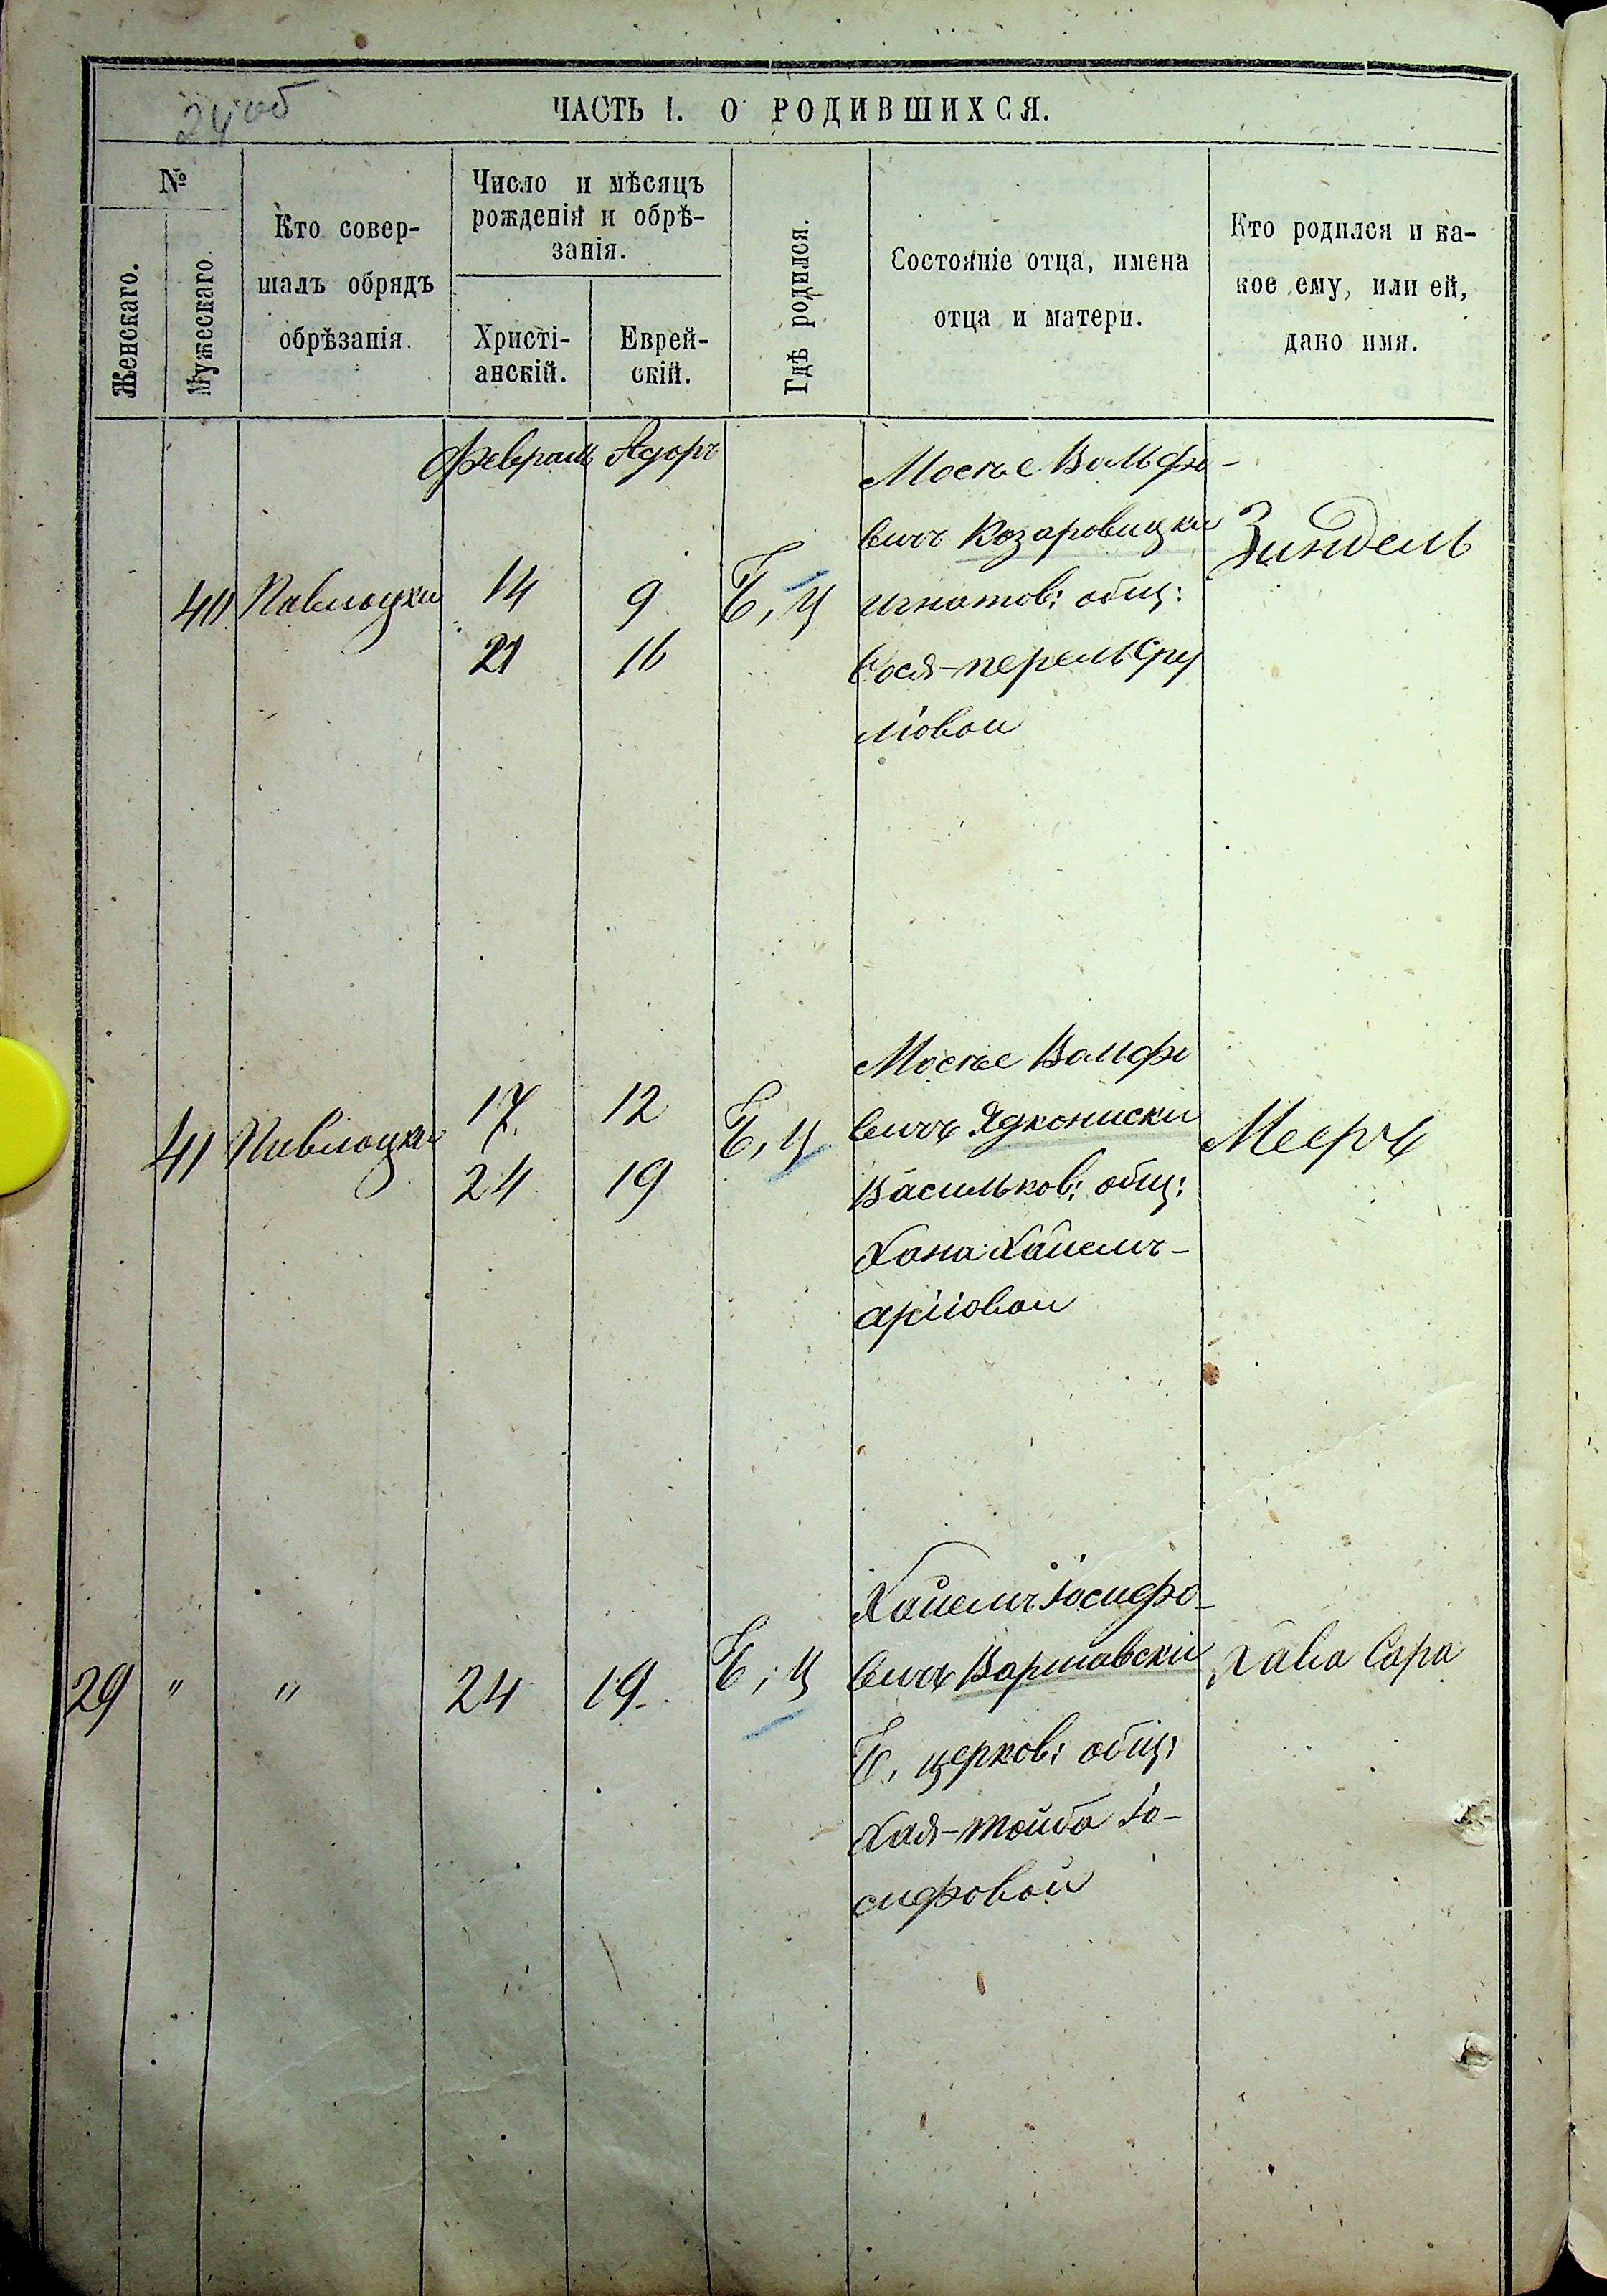 24 об
ЧАСТЬ I. О РОДИВШИХСЯ.
№
Женскаго.
Мужескаго.
Кто совер-
шалъ обрядъ
обрѣзанія.
Число и мѣсяцъ
рожденія и обрѣ-
занія.
Христі-
анскій.
Еврей-
скій.
Гдѣ родился.
Состояніе отца, имена
отца и матери.
Кто родился и ка-
кое ему, или ей,
дано имя.
Февраль Адоръ
40 Павлоцки 14 9 Б, Ц
21 16
Мостье Вольфо-
вичъ Козаровицки
игнатов: общ:
Сося-перель Сру
ліовои
Зиндель
41 Павлоцки 17 12 Б, Ц
24 19
Мостье Волфо
вичъ
Васильков: общ:
Хана Хаимъ-
аріiовои
Мееръ
29 " " 24 19 Б, Ц
Хаимъ Іосифо-
вичъ Варшавски
Б, церков: общ:
Хая-тойба Іо-
сифовой
Хава Сара